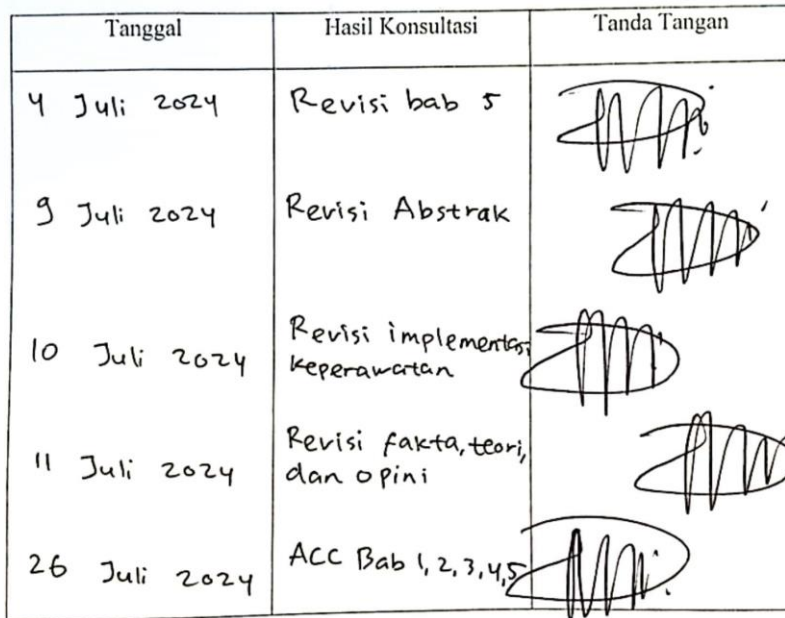 Tanggal Hasil Konsultasi Tanda Tangan
4 Juli 2024 Revisi bab 5
9 Juli 2024 Revisi Abstrak
10 Juli 2024 Revisi implementasi
keperawatan
11 Juli 2024 Revisi fakta, teori,
dan opini
26 Juli 2024 ACC Bab 1, 2, 3, 4, 5